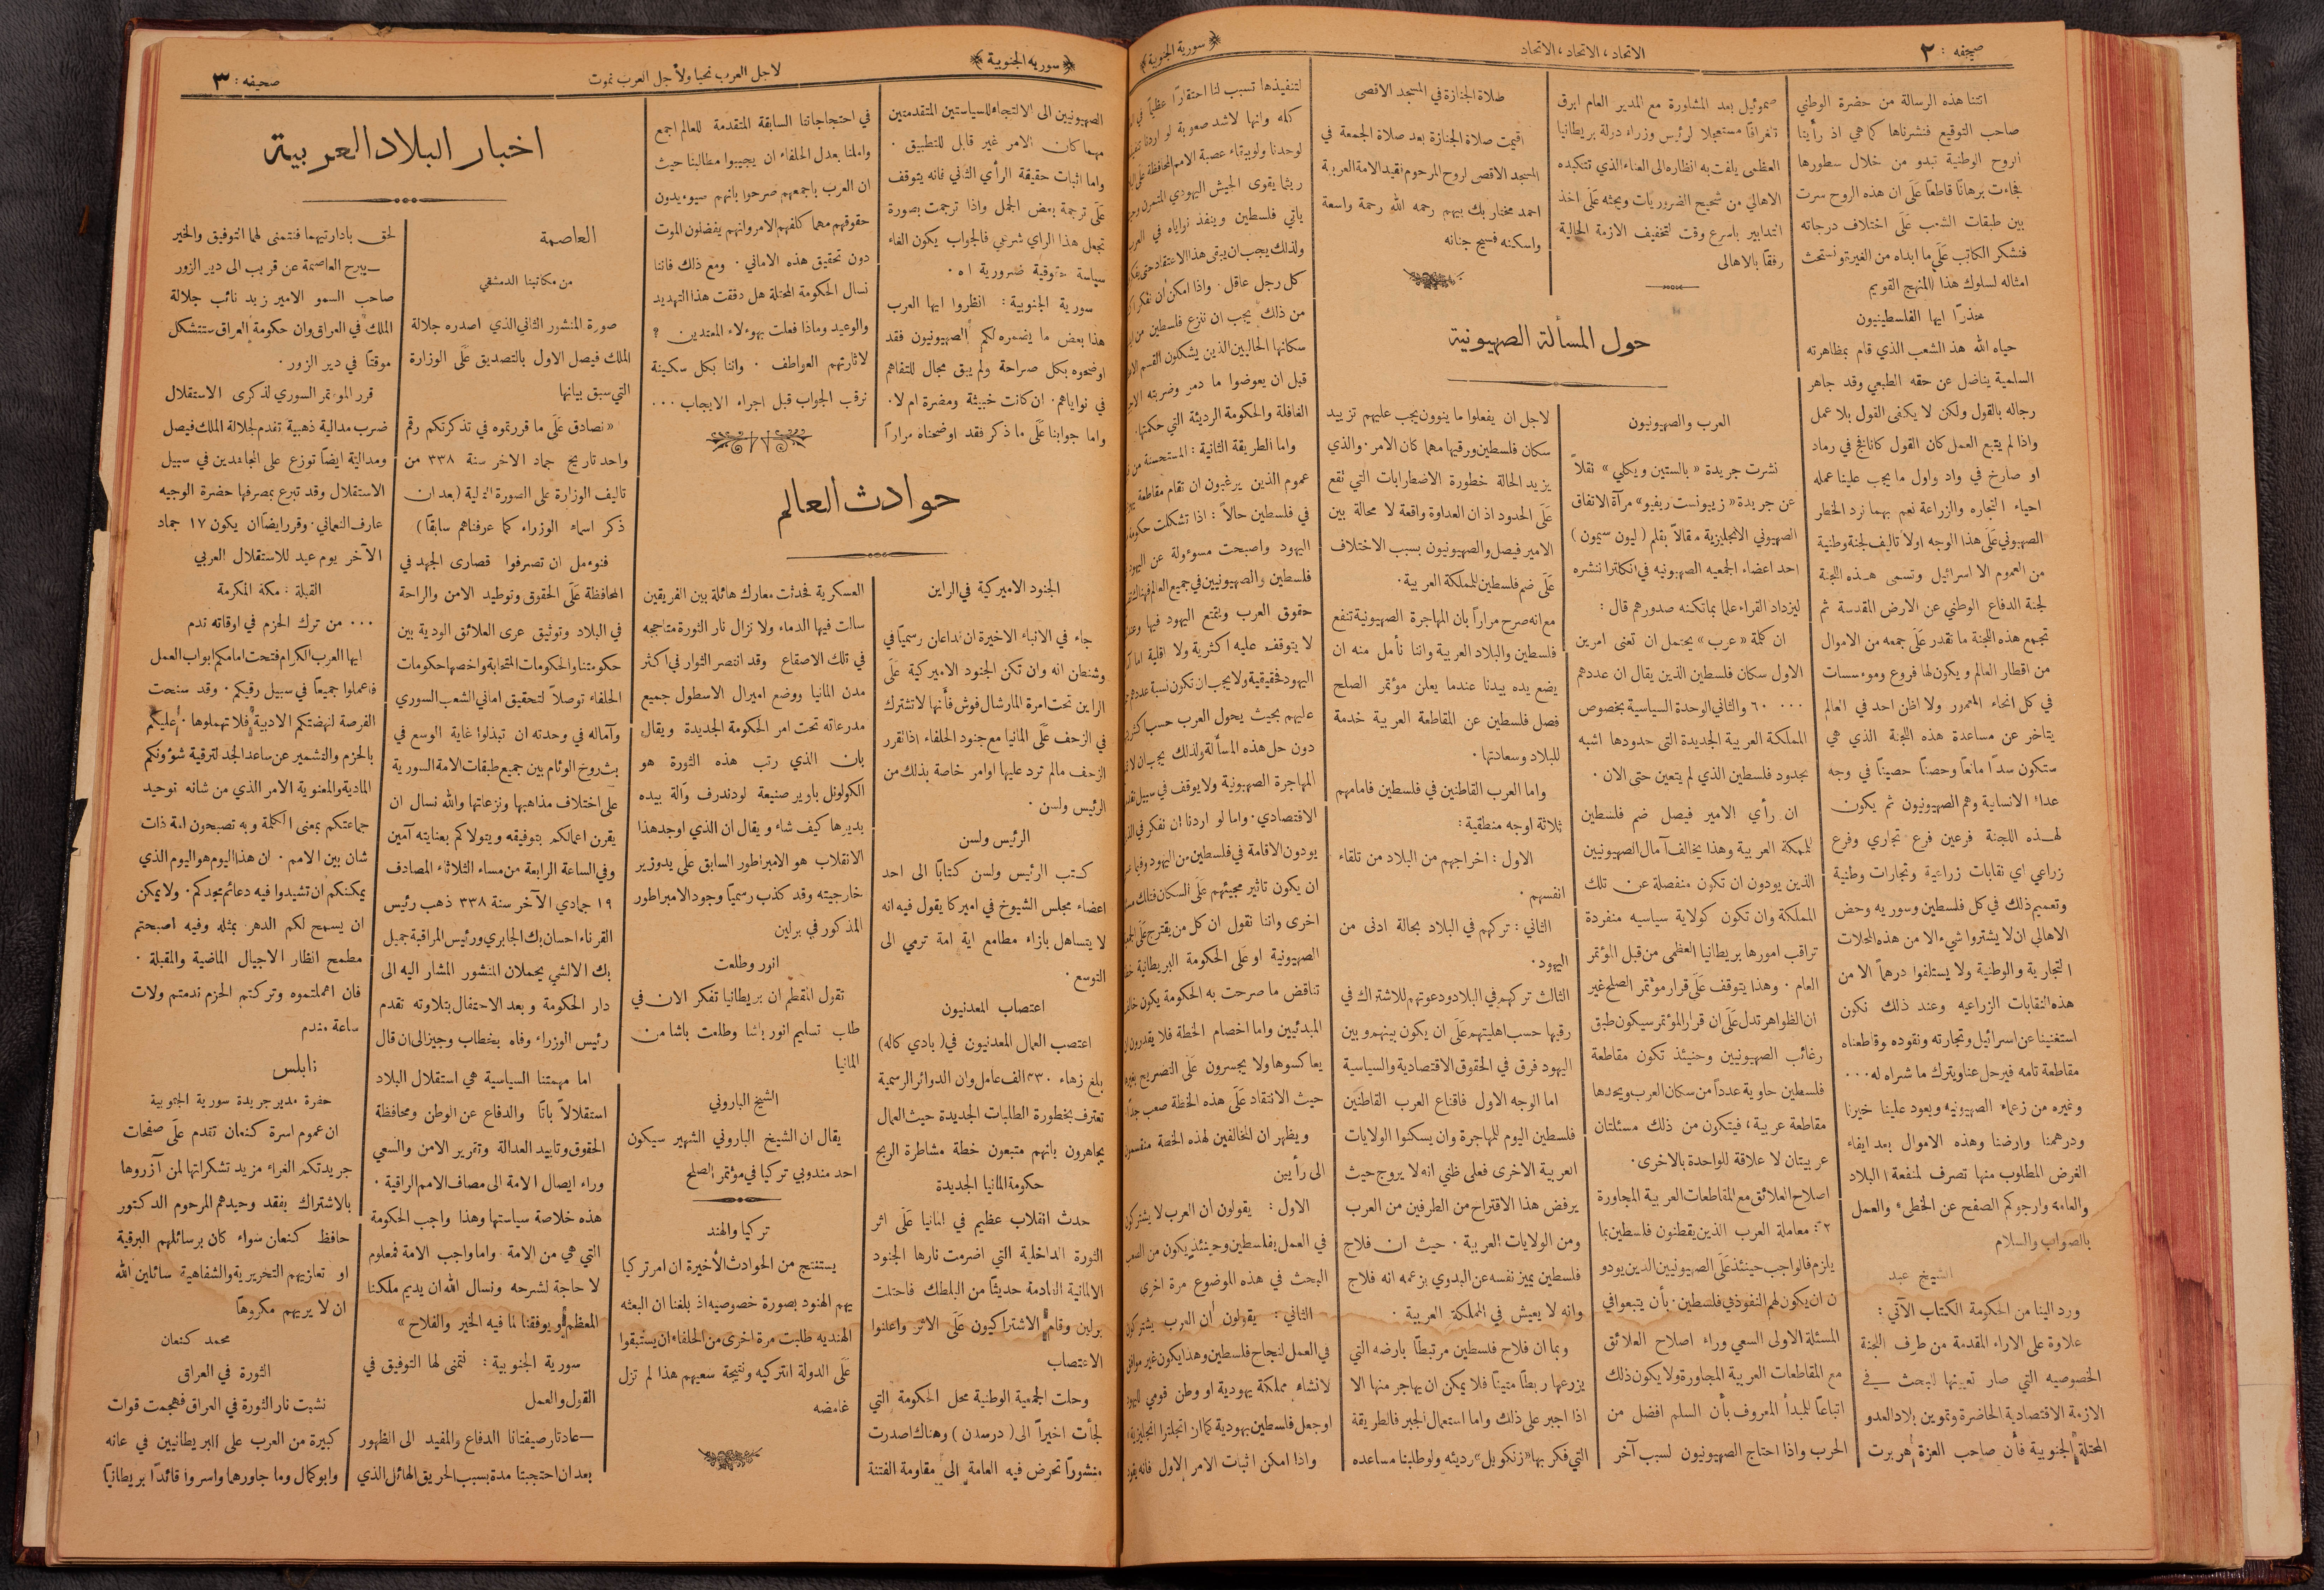 صحيفه : ٢
الاتحاد ، الاتحاد ، الاتحاد
﴿ سورية الجنوبية ﴾
اتتنا هذه الرسالة من حضرة الوطني
صاحب التوقيع فنشرناها كما هي اذ رأينا
الروح الوطنية تبدو من خلال سطورها
فجاءت برهانًا قاطعًا عَلَى ان هذه الروح سرت
بين طبقات الشعب عَلَى اختلاف درجاته
فنشكر الكاتب عَلَى ما ابداه من الغيرة ونستحث
امثاله لسلوك هذا المنهج القويم
حذرًا ايها الفلسطينيون
حياه الله هذ الشعب الذي قام بمظاهرته
السلمية يناضل عن حقه الطبعي وقد جاهر
رجاله بالقول ولكن لا يكفى القول بلا عمل
واذا لم يتبع العمل كان القول كنافخ في رماد
او صارخ في واد واول ما يجب علينا عمله
احياء التجاره والزراعة نعم بهما نرد الخطر
الصهيوني عَلَى هذا الوجه اولا تاليف لجنة وطنية
من العموم الا اسرائيل وتسمى هذه اللجنة
لجنة الدفاع الوطني عن الارض المقدسة ثم
تجمع هذه اللجنة ما تقدر عَلَى جمعه من الاموال
من اقطار العالم ويكون لها فروع وموءسسات
في كل انحاء المعمور ولا اظن احد في العالم
يتاخر عن مساعدة هذه اللجنة الذي هي
ستكون سدًا مانعًا وحصنًا حصينًا في وجه
عداء الانسانية وهم الصهيونيون ثم يكون
لهذه اللجنة فرعين فرع تجاري وفرع
زراعي اي نقابات زراعية وتجارات وطنية
وتعميم ذلك في كل فلسطين وسوريه وحض
الاهالي ان لا يشتروا شيء الا من هذه المحلات
التجارية والوطنية ولا يستلفوا درهماً الا من
هذه النقابات الزراعيه وعند ذلك نكون
استغنينا عن اسرائيل وتجارته ونقوده وقاطعناه
مقاطعة تامه فيرحل عنا ويترك ما شراه له ...
وغيره من زعماء الصهيونيه ويعود علينا خيرنا
ودرهمنا وارضنا وهذه الاموال بعد ايفاء
الغرض المطلوب منها تصرف لمنفعة البلاد
والعامة وارجوكم الصفح عن الخطىء والعمل
بالصواب والسلام
الشيخ عبد
ورد الينا من الحكومة الكتاب الآتي :
علاوة على الاراء المقدمة من طرف اللجنة
الخصوصيه التي صار تعيينها للبحث في
الازمة الاقتصادية الحاضرة وتموين بلاد العدو
المحتلة الجنوبية فأن صاحب العزة هربرت
صموئيل بعد المشاورة مع المدير العام ابرق
تلغرافًا مستعجلا لرئيس وزراء دولة بريطانيا
العظمى يلفت به انظاره الى العناء الذي تتكبده
الاهالي من شحيح الضروريات ويحثه عَلَى اخذ
التدابير باسرع وقت لتخفيف الازمة الحالية
رفقًا بالاهالى
صلاة الجنازة في المسجد الاقصى
اقيمت صلاة الجنازة بعد صلاة الجمعة في
المسجد الاقصى لروح المرحوم نقيد الامة العربية
احمد مختار بك بيهم رحمه الله رحمة واسعة
واسكنه فسيح جنانه
حول المسألة الصهيونية
العرب والصهيونيون
نشرت جريدة « بالستين ويكلي » نقلاً
عن جريدة « زيونست ريفيو » مرآة الاتفاق
الصهيوني الانجليزية مقالاً بقلم ( ليون سيمون )
احد اعضاء الجمعيه الصهيونيه في انكلترا ننشره
ليزداد القراء علما بما تكنه صدورهم قال :
ان كلة « عرب » يحتمل ان تعنى امرين
الاول سكان فلسطين الذين يقال ان عددهم
٦٠٠٠٠ والثاني الوحدة السياسية بخصوص
المملكة العربية الجديدة التى حدودها اشبه
بحدود فلسطين الذي لم يتعين حتى الان ٠
ان رأي الامير فيصل ضم فلسطين
للمملكة العربية وهذا يخالف آمال الصهيونيين
الذين يودون ان تكون منفصلة عن تلك
المملكة وان تكون كولاية سياسيه منفردة
تراقب امورها بريطانيا العظمى من قبل المؤتمر
العام ٠ وهذا يتوقف عَلَى قرار مؤتمر الصلح غير
ان الظواهر تدل عَلَى ان قرار المؤتمر سيكون طبق
رغائب الصهيونيين وحينئذ تكون مقاطعة
فلسطين حاوية عدداً من سكان العرب ويحدها
مقاطعة عربية ، فيتكون من ذلك مسئلتان
عربيتان لا علاقة للواحدة بالاخرى ٠
اصلاح العلائق مع المقاطعات العربية المجاورة
٢ : معاملة العرب الذين يقطنون فلسطين بما
يلزم فالواجب حينئذ عَلَى الصهيونيين الذين يودو
ن ان يكون لهم النفوذ في فلسطين ٠ بأن يتبعوا في
المسئلة الاولى السعي وراء اصلاح العلائق
مع المقاطعات العربية المجاورة ولا يكون ذلك
اتباعًا للمبدأ المعروف بأن السلم افضل من
الحرب واذا احتاج الصهيونيون لسبب آخر
لاجل ان يفعلوا ما ينوون يجب عليهم تزييد
سكان فلسطين ورقيها مهما كان الامر ٠ والذي
يزيد الحالة خطورة الاضطرابات التي تقع
عَلَى الحدود اذ ان العداوة واقعة لا محالة بين
الامير فيصل والصهيونيون بسبب الاختلاف
عَلَى ضم فلسطين للمملكة العربية ٠
مع انه صرح مراراً بان المهاجرة الصهيونية تنفع
فلسطين والبلاد العربية واننا نأمل منه ان
يضع يده بيدنا عندما يعلن مؤتمر الصلح
فصل فلسطين عن المقاطعة العربية خدمة
للبلاد وسعادتها ٠
واما العرب القاطنين في فلسطين فامامهم
ثلاثة اوجه منطقية :
الاول : اخراجهم من البلاد من تلقاء
انفسهم ٠
الثاني : تركهم في البلاد بحالة ادنى من
اليهود ٠
الثالث تركهم في البلاد ودعوتهم للاشتراك في
رقيها حسب اهليتهم عَلَى ان يكون بينهم وبين
اليهود فرق في الحقوق الاقتصادية والسياسية
اما الوجه الاول فاقناع العرب القاطنين
فلسطين اليوم للمهاجرة وان يسكنوا الولايات
العربية الاخرى فعلى ظني انه لا يروج حيث
يرفض هذا الاقتراح من الطرفين من العرب
ومن الولايات العربية ٠ حيث ان فلاح
فلسطين يميز نفسه عن البدوي بزعمه انه فلاح
وانه لا يعيش في المملكة العربية ٠
وبما ان فلاح فلسطين مرتبطًا بارضه التي
يزرعها ربطًا متينًا فلا يمكن ان يهاجر منها الا
اذا اجبر على ذلك واما استعمال الجبر فالطريقة
التي فكر بها « زنكويل » رديئه ولو طلبنا مساعده
لتنفيذها تسبب لنا احتقارًا عظيمًا في
كله وانها لاشد صعوبة لو اردنا
لوحدنا ولو بيتهاء عصبة الامم المحافظة على
ريثما يقوى الجيش اليهودي المتمرن
ياتي فلسطين وينفذ نواياه في
ولذلك يجب ان يبقى هذا الاعتقاد حتى
كل رجل عاقل ٠ واذا امكن ان نفكر
من ذلك يجب ان ننزع فلسطين من
سكانها الحاليين الذين يشكلون القسم
قبل ان يعوضوا ما دمر وضربته
الغافلة والحكومة الرديئة التي حكمتها ٠
واما الطريقة الثانية : المستحسنة من
عموم الذين يرغبون ان تقام مقاطعة
في فلسطين حالاً : اذا تشكلت
اليهود واصبحت مسوءولة عن
فلسطين والصهيونيين في جميع العالم
حقوق العرب وبتمتع اليهود فيها
لا يتوقف عليه اكثرية ولا اقلية
اليهود حقيقية ولا يجب ان تكون نسبة
عليهم بحيث يحول العرب حسب
دون حل هذه المسألة ولذلك يجب ان
المهاجرة الصهيونية ولا يوقف في سبيل
الاقتصادي ٠ واما لو اردنا ان نفكر في
يودون الاقامة في فلسطين من اليهود
ان يكون تاثير مجيئهم عَلَى السكان
اخرى واننا نقول ان كل من يقترح عَلَى
الصهيونية او عَلَى الحكومة البريطانية
تناقض ما صرحت به الحكومة يكون
المبدئيين واما اخصام الخطة فلا يقدرون
يعاكسوها ولا يجسرون عَلَى التصريح
حيث الانتقاد عَلَى هذه الخطة صعب جدًا
ويظهر ان المخالفين لهذه الخطة منقسمون
الى رأيين
الاول : يقولون ان العرب لا يشتركون
في العمل بفلسطين وحينئذ يكون من
البحث في هذه الموضوع مرة اخرى
الثاني : يقولون ان العرب يشتركون
في العمل لنجاح فلسطين وهذا يكون غير
لانشاء مملكة يهودية او وطن قومي
او جعل فلسطين يهودية كما ان انجلترا
واذا امكن اثبات الامر الاول فانه
﴿ سوريه الجنوبية ﴾
لاجل العرب نحيا ولأجل العرب نموت
صحيفه : ٣
الصهيونيين الى الالتجاء للسياستين المتقدمتين
مهما كان الامر غير قابل للتطبيق ٠
واما اثبات حقيقة الرأي الثاني فانه يتوقف
عَلَى ترجمة بعض الجمل واذا ترجمت بصورة
تجعل هذا الراي شرعي فالجواب يكون الغاء
سياسة حقوقية ضرورية ا ه ٠
سورية الجنوبية : انظروا ايها العرب
هذا بعض ما يضمره لكم الصهيونيون فقد
اوضحوه بكل صراحة ولم يبق مجال للتفاهم
في نواياهم ٠ ان كانت خبيثة ومضرة ام لا ٠
واما جوابنا عَلَى ما ذكر فقد اوضحناه مراراً
في احتجاجاتنا السابقة المتقدمة للعالم اجمع
واملنا بعدل الحلفاء ان يجيبوا مطالبنا حيث
ان العرب باجمعهم صرحوا بانهم سيوءيدون
حقوقهم مهما كلفهم الامر وانهم يفضلون الموت
دون تحقيق هذه الاماني ٠ ومع ذلك فاننا
نسال الحكومة المحتلة هل دققت هذا التهديد
والوعيد وماذا فعلت بهوءلاء المعتدين ؟
لاثارتهم العواطف ٠ واننا بكل سكينة
نرقب الجواب قبل اجراء الايجاب ٠٠٠
حوادث العالم
الجنود الاميركية في الراين
جاء في الانباء الاخيرة ان نداعان رسميًا في
وشنطن انه وان تكن الجنود الاميركية عَلَى
الراين تحت امرة المارشال فوش فأنها لا تشترك
في الزحف عَلَى المانيا مع جنود الحلفاء اذا تقرر
الزحف مالم ترد عليها اوامر خاصة بذلك من
الرئيس ولسن ٠
الرئيس ولسن
كتب الرئيس ولسن كتابًا الى احد
اعضاء مجلس الشيوخ في اميركا يقول فيه انه
لا يتساهل بازاء مطامع اية امة ترمي الى
التوسع ٠
اعتصاب المعدنيون
اعتصب العمال المعدنيون في ( بادي كاله )
بلغ زهاء ٤٣٠ الف عامل وان الدوائر الرسمية
تعترف بخطورة الطلبات الجديدة حيث العمال
يجاهرون بانهم متبعون خطة مشاطرة الربح
حكومة المانيا الجديدة
حدث انقلاب عظيم في المانيا عَلَى اثر
الثورة الداخلية التي اضرمت نارها الجنود
الالمانية القادمة حديثًا من البلطك فاحتلت
برلين وقام الاشتراكيون عَلَى الاثر واعلنوا
الاعتصاب
وحلت الجمعية الوطنية محل الحكومة التي
لجأت اخيرًا الى ( درسدن ) وهناك اصدرت
منشورًا تحرض فيه العامة الى مقاومة الفتنة
العسكرية فحدثت معارك هائلة بين الفريقين
سالت فيها الدماء ولا تزال نار الثورة متاججه
في تلك الاصقاع وقد انتصر الثوار في اكثر
مدن المانيا ووضع اميرال الاسطول جميع
مدرعاته تحت امر الحكومة الجديدة ويقال
بان الذي رتب هذه الثورة هو
الكولونل باوير صنيعة لودندرف وآلة بيده
يديرها كيف شاء ويقال ان الذي اوجد هذا
الانقلاب هو الامبراطور السابق على يد وزير
خارجيته وقد كذب رسميًا وجود الامبراطور
المذكور في برلين
انور وطلعت
تقول المقطم ان بريطانيا تفكر الان في
طلب تسليم انور باشا وطلعت باشا من
المانيا
الشيخ الباروني
يقال ان الشيخ الباروني الشهير سيكون
احد مندوبي تركيا في مؤتمر الصلح
تركيا والهند
يستنتج من الحوادث الأخيرة ان امر تركيا
يهم الهنود بصورة خصوصيه اذ بلغنا ان البعثه
الهنديه طلبت مرة اخرى من الحلفاء ان يستبقوا
عَلَى الدولة التركيه ونتيجة سعيهم هذا لم تزل
غامضه
اخبار البلاد العربية
العاصمة
من مكاتبنا الدمشقي
صورة المنشور الثاني الذي اصدره جلالة
الملك فيصل الاول بالتصديق عَلَى الوزارة
التي سبق بيانها
« نصادق عَلَى ما قررتموه في تذكرتكم رقم
واحد تاريخ جماد الاخر سنة ٣٣٨ من
تاليف الوزارة على الصورة التالية ( بعد ان
ذكر اسماء الوزراء كما عرفناهم سابقًا )
فنوءمل ان تصرفوا قصارى الجهد في
المحافظة عَلَى الحقوق وتوطيد الامن والراحة
في البلاد وتوثيق عرى العلائق الودية بين
حكومتنا والحكومات المتحابة واخصها حكومات
الحلفاء توصلاً لتحقيق اماني الشعب السوري
وآماله في وحدته ان تبذلوا غاية الوسع في
بث روخ الوئام بين جميع طبقات الامة السورية
على اختلاف مذاهبها ونزعاتها والله نسال ان
يقرن اعمالكم بتوفيقه ويتولاكم بعنايته آمين
وفي الساعة الرابعة من مساء الثلاثاء المصادف
١٩ جمادي الآخر سنة ٣٣٨ ذهب رئيس
القرناء احسان بك الجابري ورئيس المراقبة جميل
بك الالشي يحملان المنشور المشار اليه الى
دار الحكومة وبعد الاحتفال بتلاوته تقدم
رئيس الوزراء وفاه بخطاب وجيز الى ان قال
اما مهمتنا السياسية هي استقلال البلاد
استقلالاً باتًا والدفاع عن الوطن ومحافظة
الحقوق وتاييد العدالة وتقرير الامن والسعي
وراء ايصال الامة الى مصاف الامم الراقية ٠
هذه خلاصة سياستها وهذا واجب الحكومة
التي هي من الامة ٠ واما واجب الامة فمعلوم
لا حاجة لشرحه ونسال الله ان يديم ملكنا
المعظم ويوفقنا لما فيه الخير والفلاح »
سورية الجنوبية : نتمنى لها التوفيق في
القول والعمل
— عادتا رصيفتانا الدفاع والمفيد الى الظهور
بعد ان احتجبتا مدة بسبب الحريق الهائل الذي
لحق بادارتيهما فنتمنى لهما التوفيق والخير
— يبرح العاصمة عن قريب الى دير الزور
صاحب السمو الامير زيد نائب جلالة
الملك في العراق وان حكومة العراق ستتشكل
موقتًا في دير الزور ٠
قرر الموءتمر السوري لذكرى الاستقلال
ضرب مدالية ذهبية تقدم لجلالة الملك فيصل
ومدالية ايضًا توزع على المجاهدين في سبيل
الاستقلال وقد تبرع بمصرفها حضرة الوجيه
عارف النعماني ٠ وقرر ايضًا ان يكون ١٧ جماد
الآخر يوم عيد للاستقلال العربي
القبلة : مكة المكرمة
٠٠٠ من ترك الحزم في اوقاته ندم
ايها العرب الكرام فتحت امامكم ابواب العمل
فاعملوا جميعًا في سبيل رقيكم ٠ وقد سنحت
الفرصة لنهضتكم الادبية فلا تهملوها ٠ عليكم
بالحزم والتشمير عن ساعد الجد لترقية شوءونكم
المادية والمعنوية الامر الذي من شانه توحيد
جماعتكم بمعنى الكلمة وبه تصبحون امة ذات
شان بين الامم ٠ ان هذا اليوم هو اليوم الذي
يمكنكم ان تشيدوا فيه دعائم مجدكم ٠ ولا يمكن
ان يسمح لكم الدهر بمثله وفيه اصبحتم
مطمح انظار الاجيال الماضية والمقبلة ٠
فان اهملتموه وتركتم الحزم ندمتم ولات
ساعة مندم
نابلس
حضرة مدير جريدة سورية الجنوبية
ان عموم اسرة كنعان تتقدم عَلَى صفحات
جريدتكم الغراء مزيد تشكراتها لمن آزروها
بالاشتراك بفقد وحيدهم المرحوم الدكتور
حافظ كنعان سواء كان برسائلهم البرقية
او تعازيهم التحريرية والشفاهية سائلين الله
ان لا يريهم مكروهًا
محمد كنعان
الثورة في العراق
نشبت نار الثورة في العراق فهجمت قوات
كبيرة من العرب على البريطانيين في عانه
وابو كمال وما جاورهما واسروا قائدًا بريطانيًا